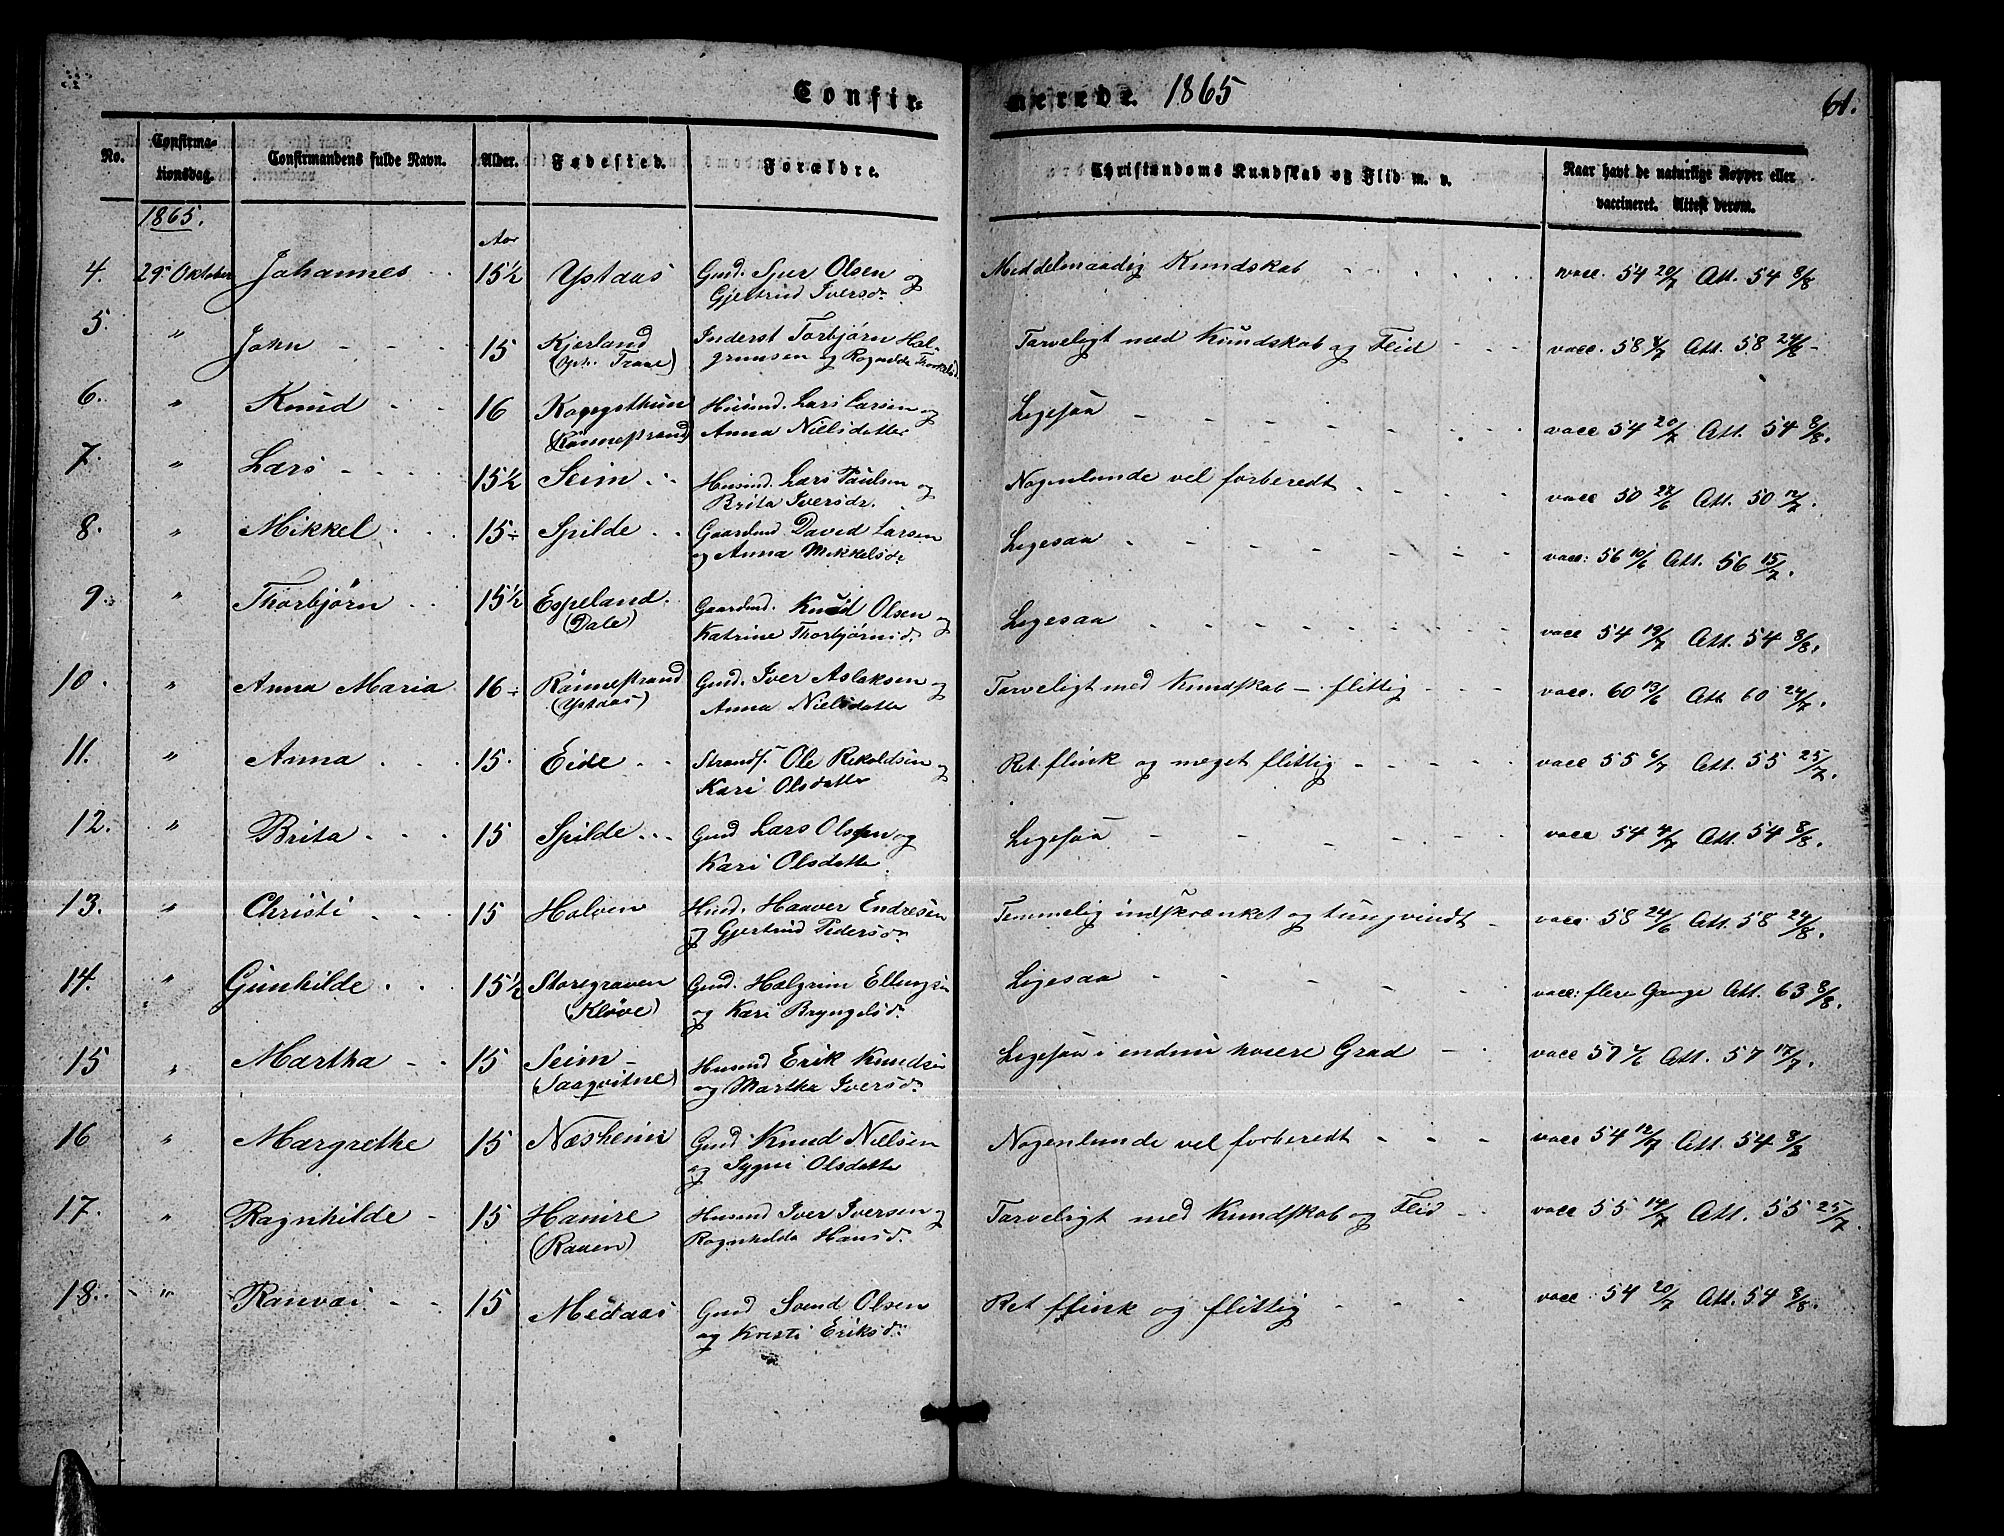 Confir-
merede. 1865
61.
No.
Confirma-
tionsdag.
Confirmandens fulde Navn.
Alder.
Fødested.
Forældre.
Christendoms Kundskab og Flid m. v.
Naar havt de naturlige Kopper eller
vaccineret. Attest derom.
1865.
Aar
4. 29de Oktober Johannes 15½ Ystaas Gmd. Sjur Olsen og Middelmaadig Kundskab vacc. 54 20/7 Att. 54 8/8
Gjertrud Iversdr
5. " John 15 Kjerland Inderst Torbjørn Hal- Tarveligt med Kundskab og Flid vacc. 58 Att. 58 24/8
(oph. Traae) grimsen og Ragnilde
6. " Knud 16 Husmd. Lars Larsen og Ligesaa vacc 54 20/7 Att. 54 8/8.
(Rønnestrand) Anna Nielsdatter
7. " Lars 15½ Seim Husmd. Lars Paulsen og Nogenlunde vel forberedt vacc 50 Att. 50 17/7.
Brita Iversdr.
8. " Mikkel 15 Spilde Gaardmd David Larsen Ligesaa vacc: 56 10/6 Att. 56 15/7.
og Anna Mikkelsdr
9. " Thorbjørn 15½ Espeland Gaardmd. Knud Olsen og Ligesaa vacc 54 19/7 Att. 54 8/8.
(Dale) Katrine Thorbjørnsd.
10. " Anna Maria 16 Rønnestrand Gmd. Iver Aslaksen og Tarveligt med Kundskab - flittig vacc. 60 13/6 Att 60 24/7.
(Ystaas) Anna Nielsdatter
11. " Anna 15. Eide Strands. Ole Rikoldsen og Ret flink og meget flittig vacc 55 6/7 Att. 55 25/7.
Kari Olsdatter
12. " Brita 15 Spilde Gmd Lars Olsen og Ligesaa vacc 54 4/7 Att. 54 8/8.
Kari Olsdatter
13. " Christi 15 Holven Husmd. Haaver Endresen Temmelig indskrænket og tungvindt vacc 58 24/6 Att. 58 24/8.
og Gjertrud Pedersdr
14. " Gunhilde 15½ Storegraven Gmd. Halgrim Ellingsen Ligesaa vacc: flere Gange Att. 63 8/8.
(Kløve) og Kari Bryngelsd.
15 " Martha 15 Seim Husmd Erik Knudsen Ligesaa i endnu høiere Grad vacc 57 Att. 57 17/7.
(Saaqvitne) og Martha Iversd.
16 " Margrethe 15 Næsheim Gmd. Knud Nielsen Nogenlunde vel forberedt vacc 54 12/7 Att. 54 8/8
og Sygni Olsdatter
17. " Ragnhilde 15 Hamre Husmd Iver Iversen og Tarveligt med Kundskab og Flid vacc 55 14/7 Att. 55 25/7.
(Raaen) Ragnhilda Hansd.
18. " Ranvei 15 Medaas Gmd Svend Olsen Ret flink og flittig vacc 54 20/7 Att. 54 8/8.
og Kristi Eriksdr